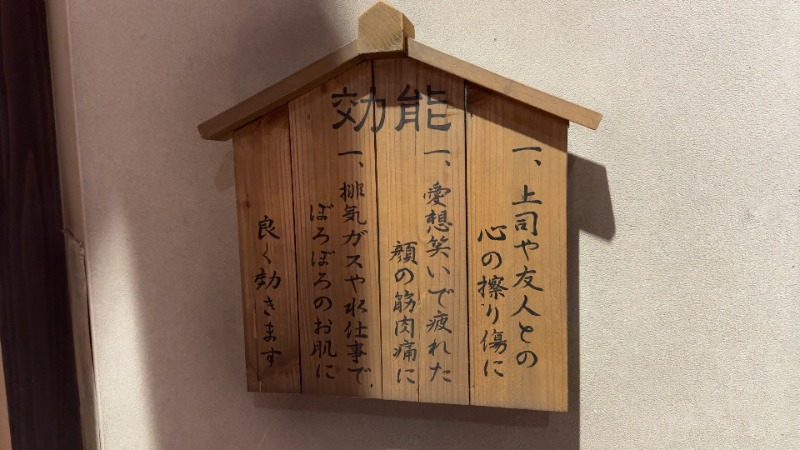 効能
一、上司や友人との
心の擦り傷に
一、愛想笑いで疲れた
顔の筋肉痛に
一、排気ガスや水仕事で、
ぼろぼろのお肌に
良く効きます